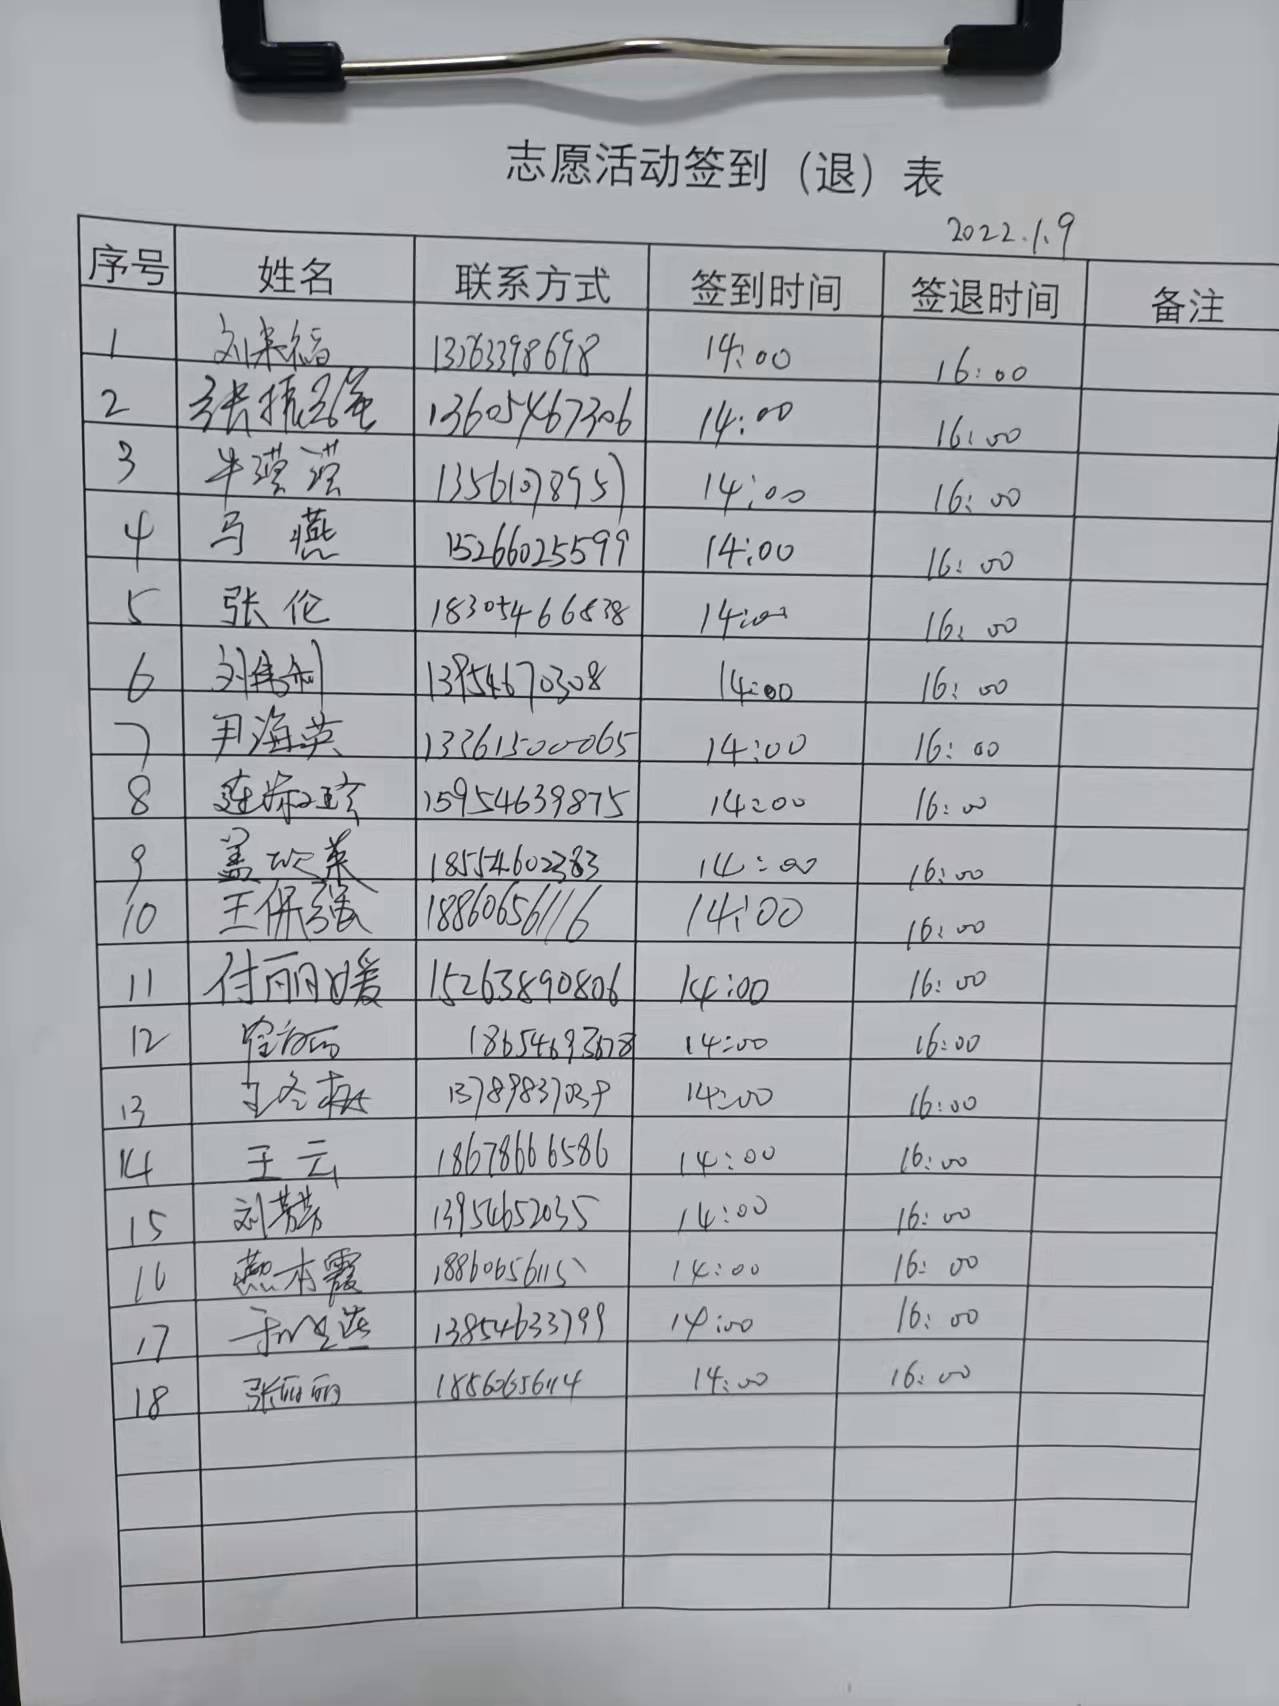 志愿活动签到（退）表
2022.1.9
序号 姓名 联系方式 签到时间 签退时间 备注
1 14:00 16:00
2 13605467306 14:00 16:00
3 14:00 16:00
4 马燕 15266025599 14:00 16:00
5 张伦 18305466838 14:00 16:00
6 13954670308 14:00 16:00
7 尹海英 13361500065 14:00 16:00
8 15954639875 14:00 16:00
9 盖欣英 18554602383 14:00 16:00
10 王保强 18860656116 14:00 16:00
11 付丽媛 15263890806 14:00 16:00
12 14:00 16:00
13 王冬梅 13789837039 14:00 16:00
14 王云 18678666586 14:00 16:00
15 刘芳芳 13954652035 14:00 16:00
16 燕本霞 18860656115 14:00 16:00
17 13854633799 14:00 16:00
18 张丽丽 18860656114 14:00 16:00